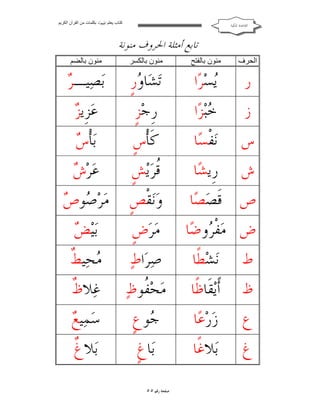 كتاب يعلم تهجيت بكلمات من القرآن الكريم
القاعدة المكية
تابع أمثلة الحروف منونة
الحرف منون بالفتح منون بالكسر منون بالضم
ر يُسْرًا تَشَاوُرٍ بَصِيـــرٌ
ز خُبْزًا رِجْزٍ عَزِيزٌ
س نَفْسًا كَأْسٍ بَأْسٌ
ش رِيشًا قُرَيْشٍ عَرْشٌ
ص قَصَصًا وَنَقْصٍ مَرْصُوصٌ
ض مَفْرُوضًا مَرَضٍ بَيْضٌ
ط نَشْطًا صِرَاطٍ مُحِيطٌ
ظ أَيْقَاظًا مَحْفُوظٍ غِلاظٌ
ع زَرْعًا جُوعٍ سَمِيعٌ
غ بَلاغًا بَاغٍ بَلاغٌ
صفحة رقم ٥٥